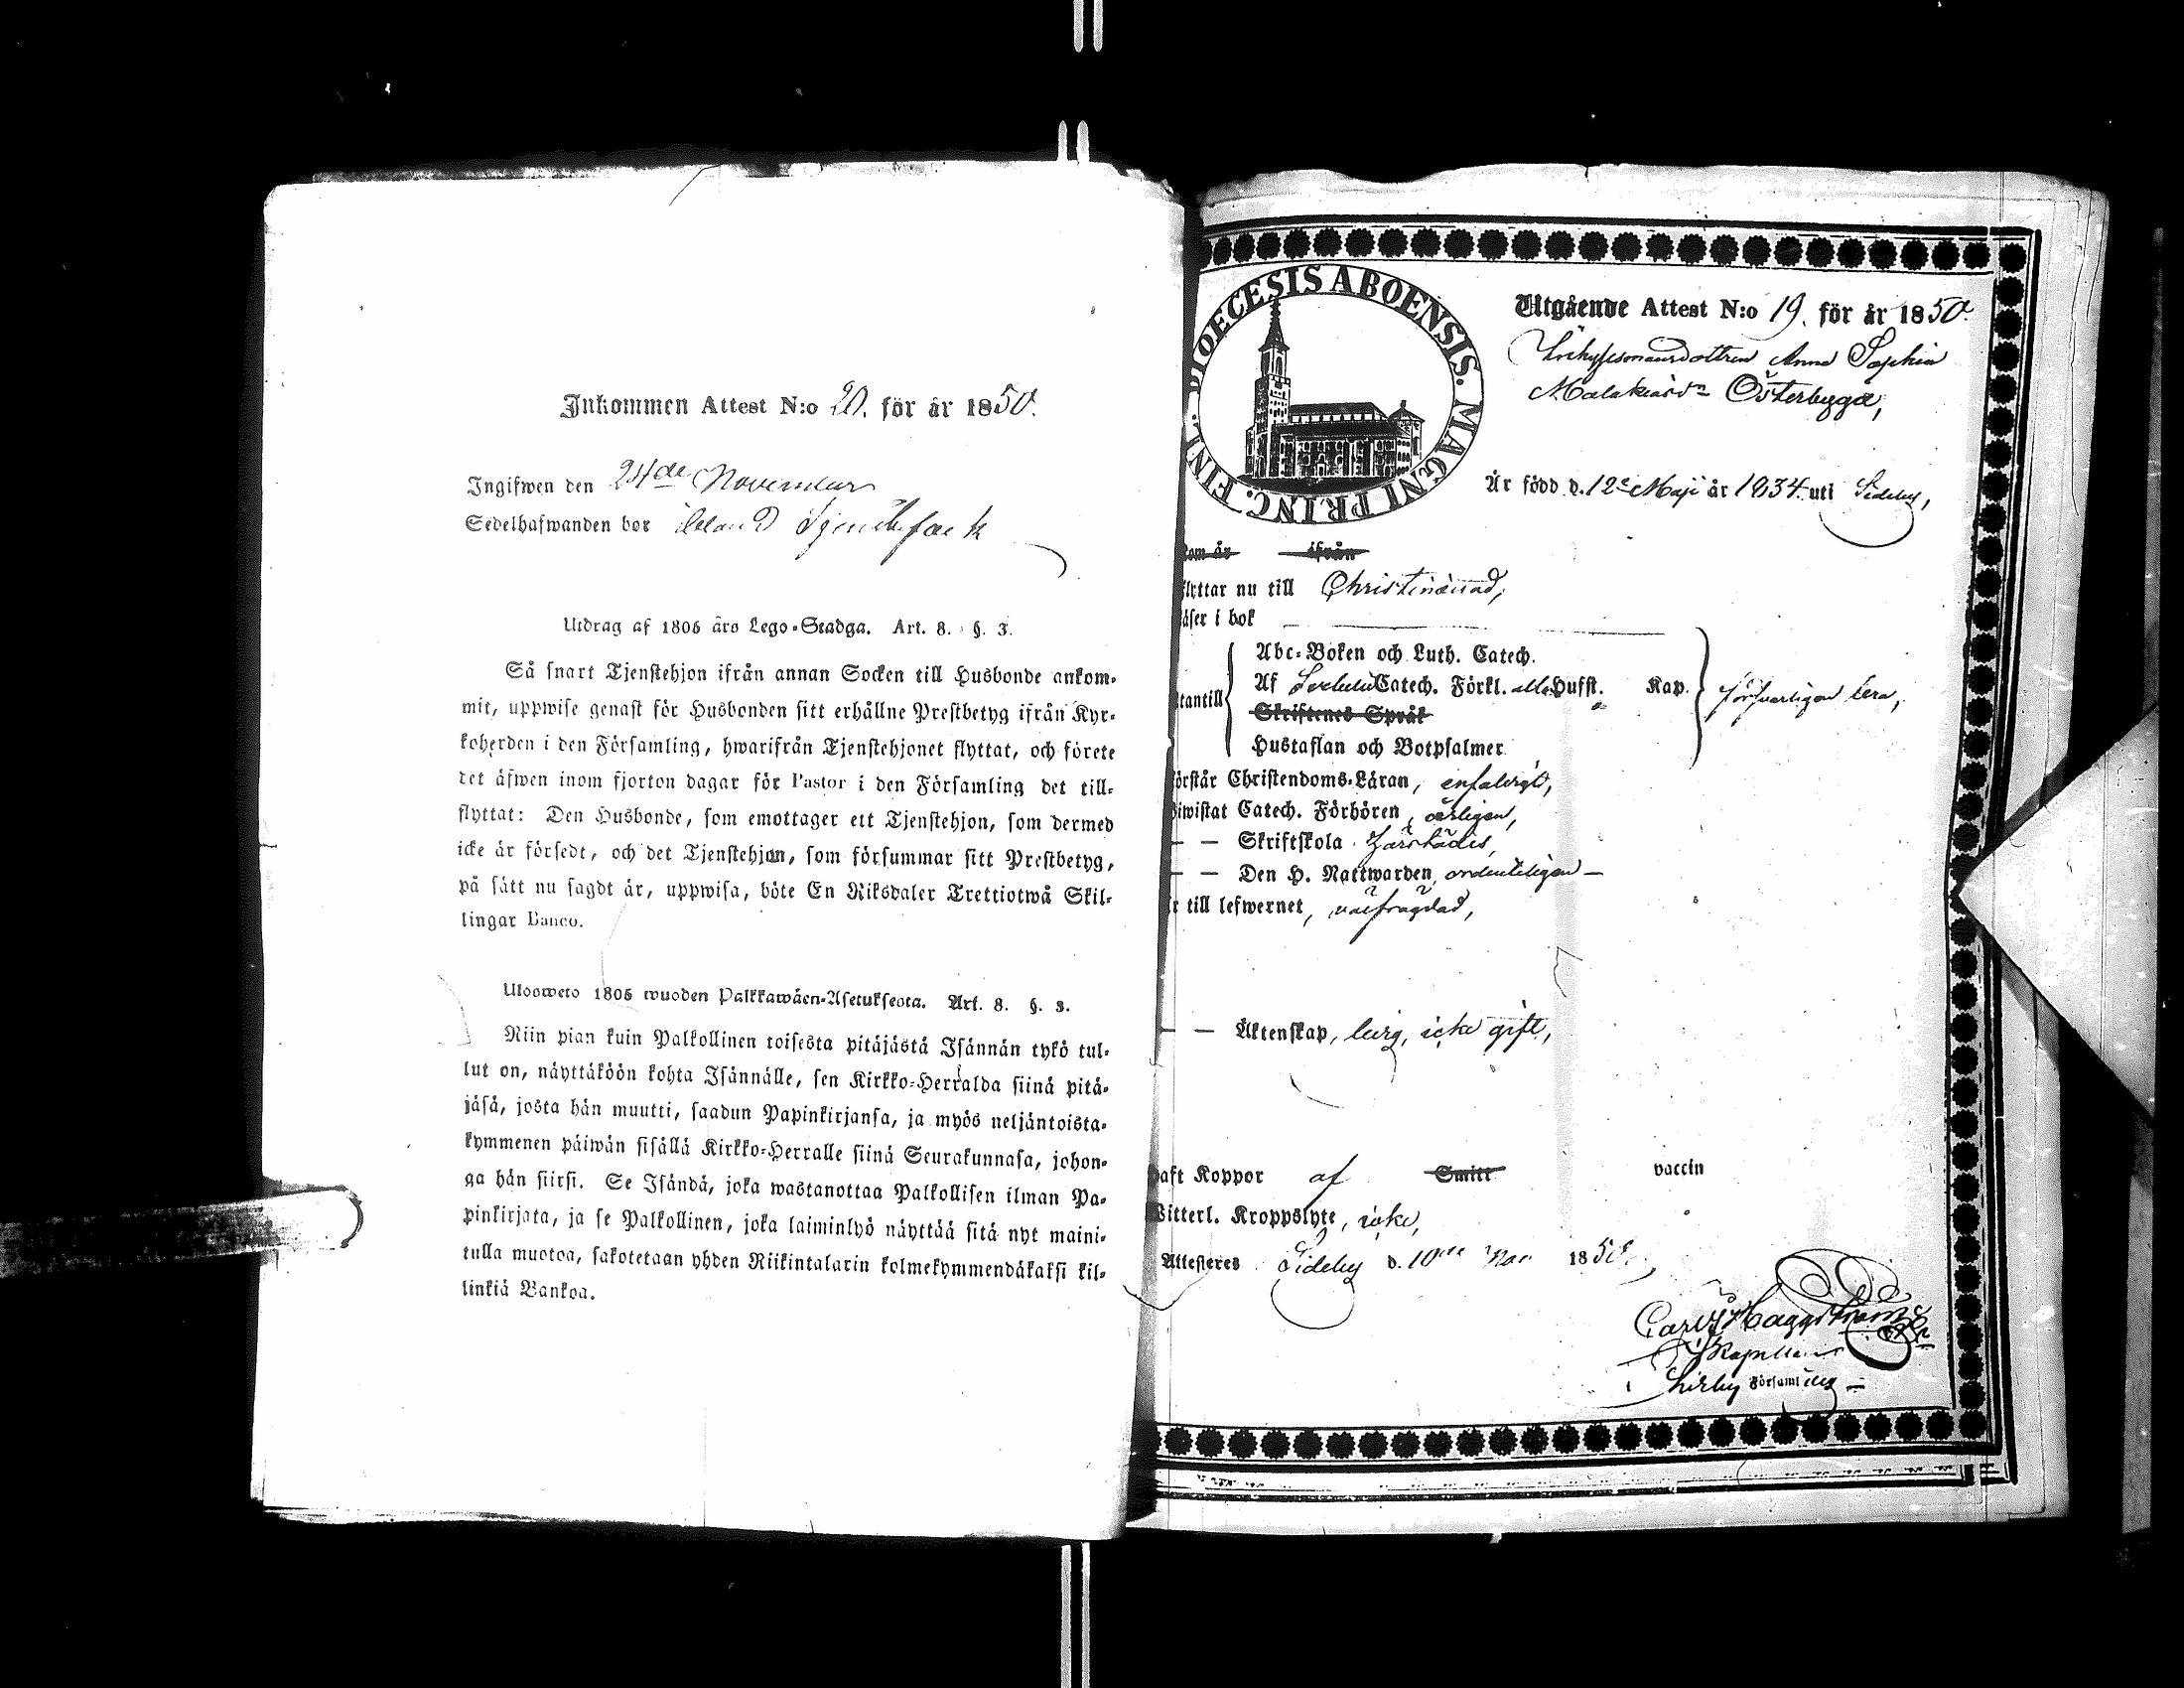 Inkommen Attest N:o 20. för år 1850.
Ingifwen den 24de November
Sedelhafwanden bor bland Tjenstefolk
Utdrag af 1805 års Lego-Stadga. Art. 8. §. 3.
Så snart Tjenstehjon ifrån annan Socken till Husbonde ankom-
mit, uppwise genast för Husbonden sitt erhållne Prestbetyg ifrån Kyr-
koherden i den Församling, hwarifrån Tjenstehjonet flyttat, och förete
det äfwen inom fjorton dagar för Pastor i den Församling det till-
flyttat: Den Husbonde, som emottager ett Tjenstehjon, som dermed
icke är försedt, och det Tjenstehjon, som försummar sitt Prestbetyg,
på sätt nu sagdt är, uppwisa, böte En Riksdaler Trettiotwå Skil-
lingar Banco.
Ulosweto 1805 wuoden Palkkawäen-Asetuksesta. Art. 8. §. 3.
Niin pian kuin Palkollinen toisesta pitäjästä Isännän tykö tul-
lut on, näyttäköön kohta Isännälle, sen Kirkko-Herralda siinä pitä-
jäsä, josta hän muutti, saadun Papinkirjansa, ja myös neljäntoista-
kymmenen päiwän sisällä Kirkko-Herralle siinä Seurakunnasa, johon-
ga hän siirsi. Se Isändä, joka wastanottaa Palkollisen ilman Pa-
pinkirjata, ja se Palkollinen, joka laiminlyö näyttää sitä nyt maini-
tulla muotoa, sakotetaan yhden Riikintalarin kolmekymmendäkaksi kil-
linkiä Bankoa.
DIOECESIS ABOENSIS. MAGNI PRINC. FINL.
Utgående Attest N:o 19. för år 1850.
Anna Sophia
Österbygge,
Är född d. 12e Maji år 1834 uti Sideby,
kom år ifrån
flyttar nu till Christinæstad,
läser i bok
utantill
Abc-Boken och Luth. Catech.
Af Catech. Förkl. alla Hufst. Kap. försvarligen lera,
Skriftenes Språk
Hustaflan och Botpsalmer
förstår Christendoms-Läran, enfaldigt,
biwistat Catech. Förhören, årligen,
— — Skriftskola
— — Den H. Nattwarden, ordenteligen —
är till lefwernet, oåtfrågdad,
— — Äktenskap, ledig, icke gift,
haft Koppor af Smitt vaccin
Witterl. Kroppslyte, icke,
Attesteres Sideby d. 10de Nov 1850,
Carl Häggström
Kapellan
i Församling